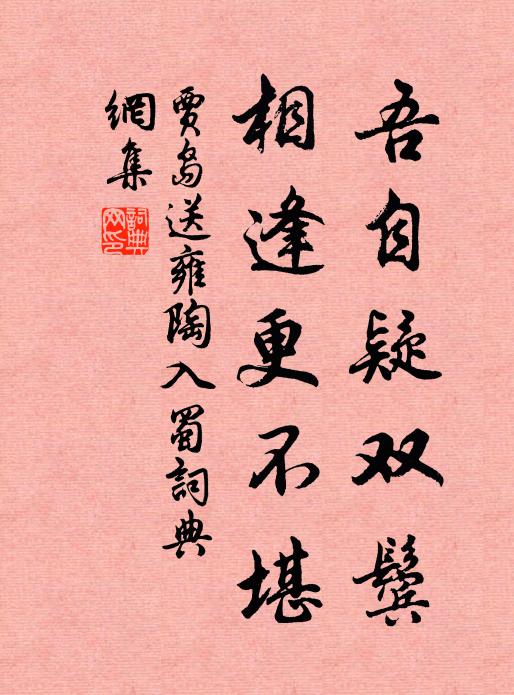 吾自疑双鬓
相逢更不堪
贾岛送雍陶入蜀詞典
網集
詞典網印